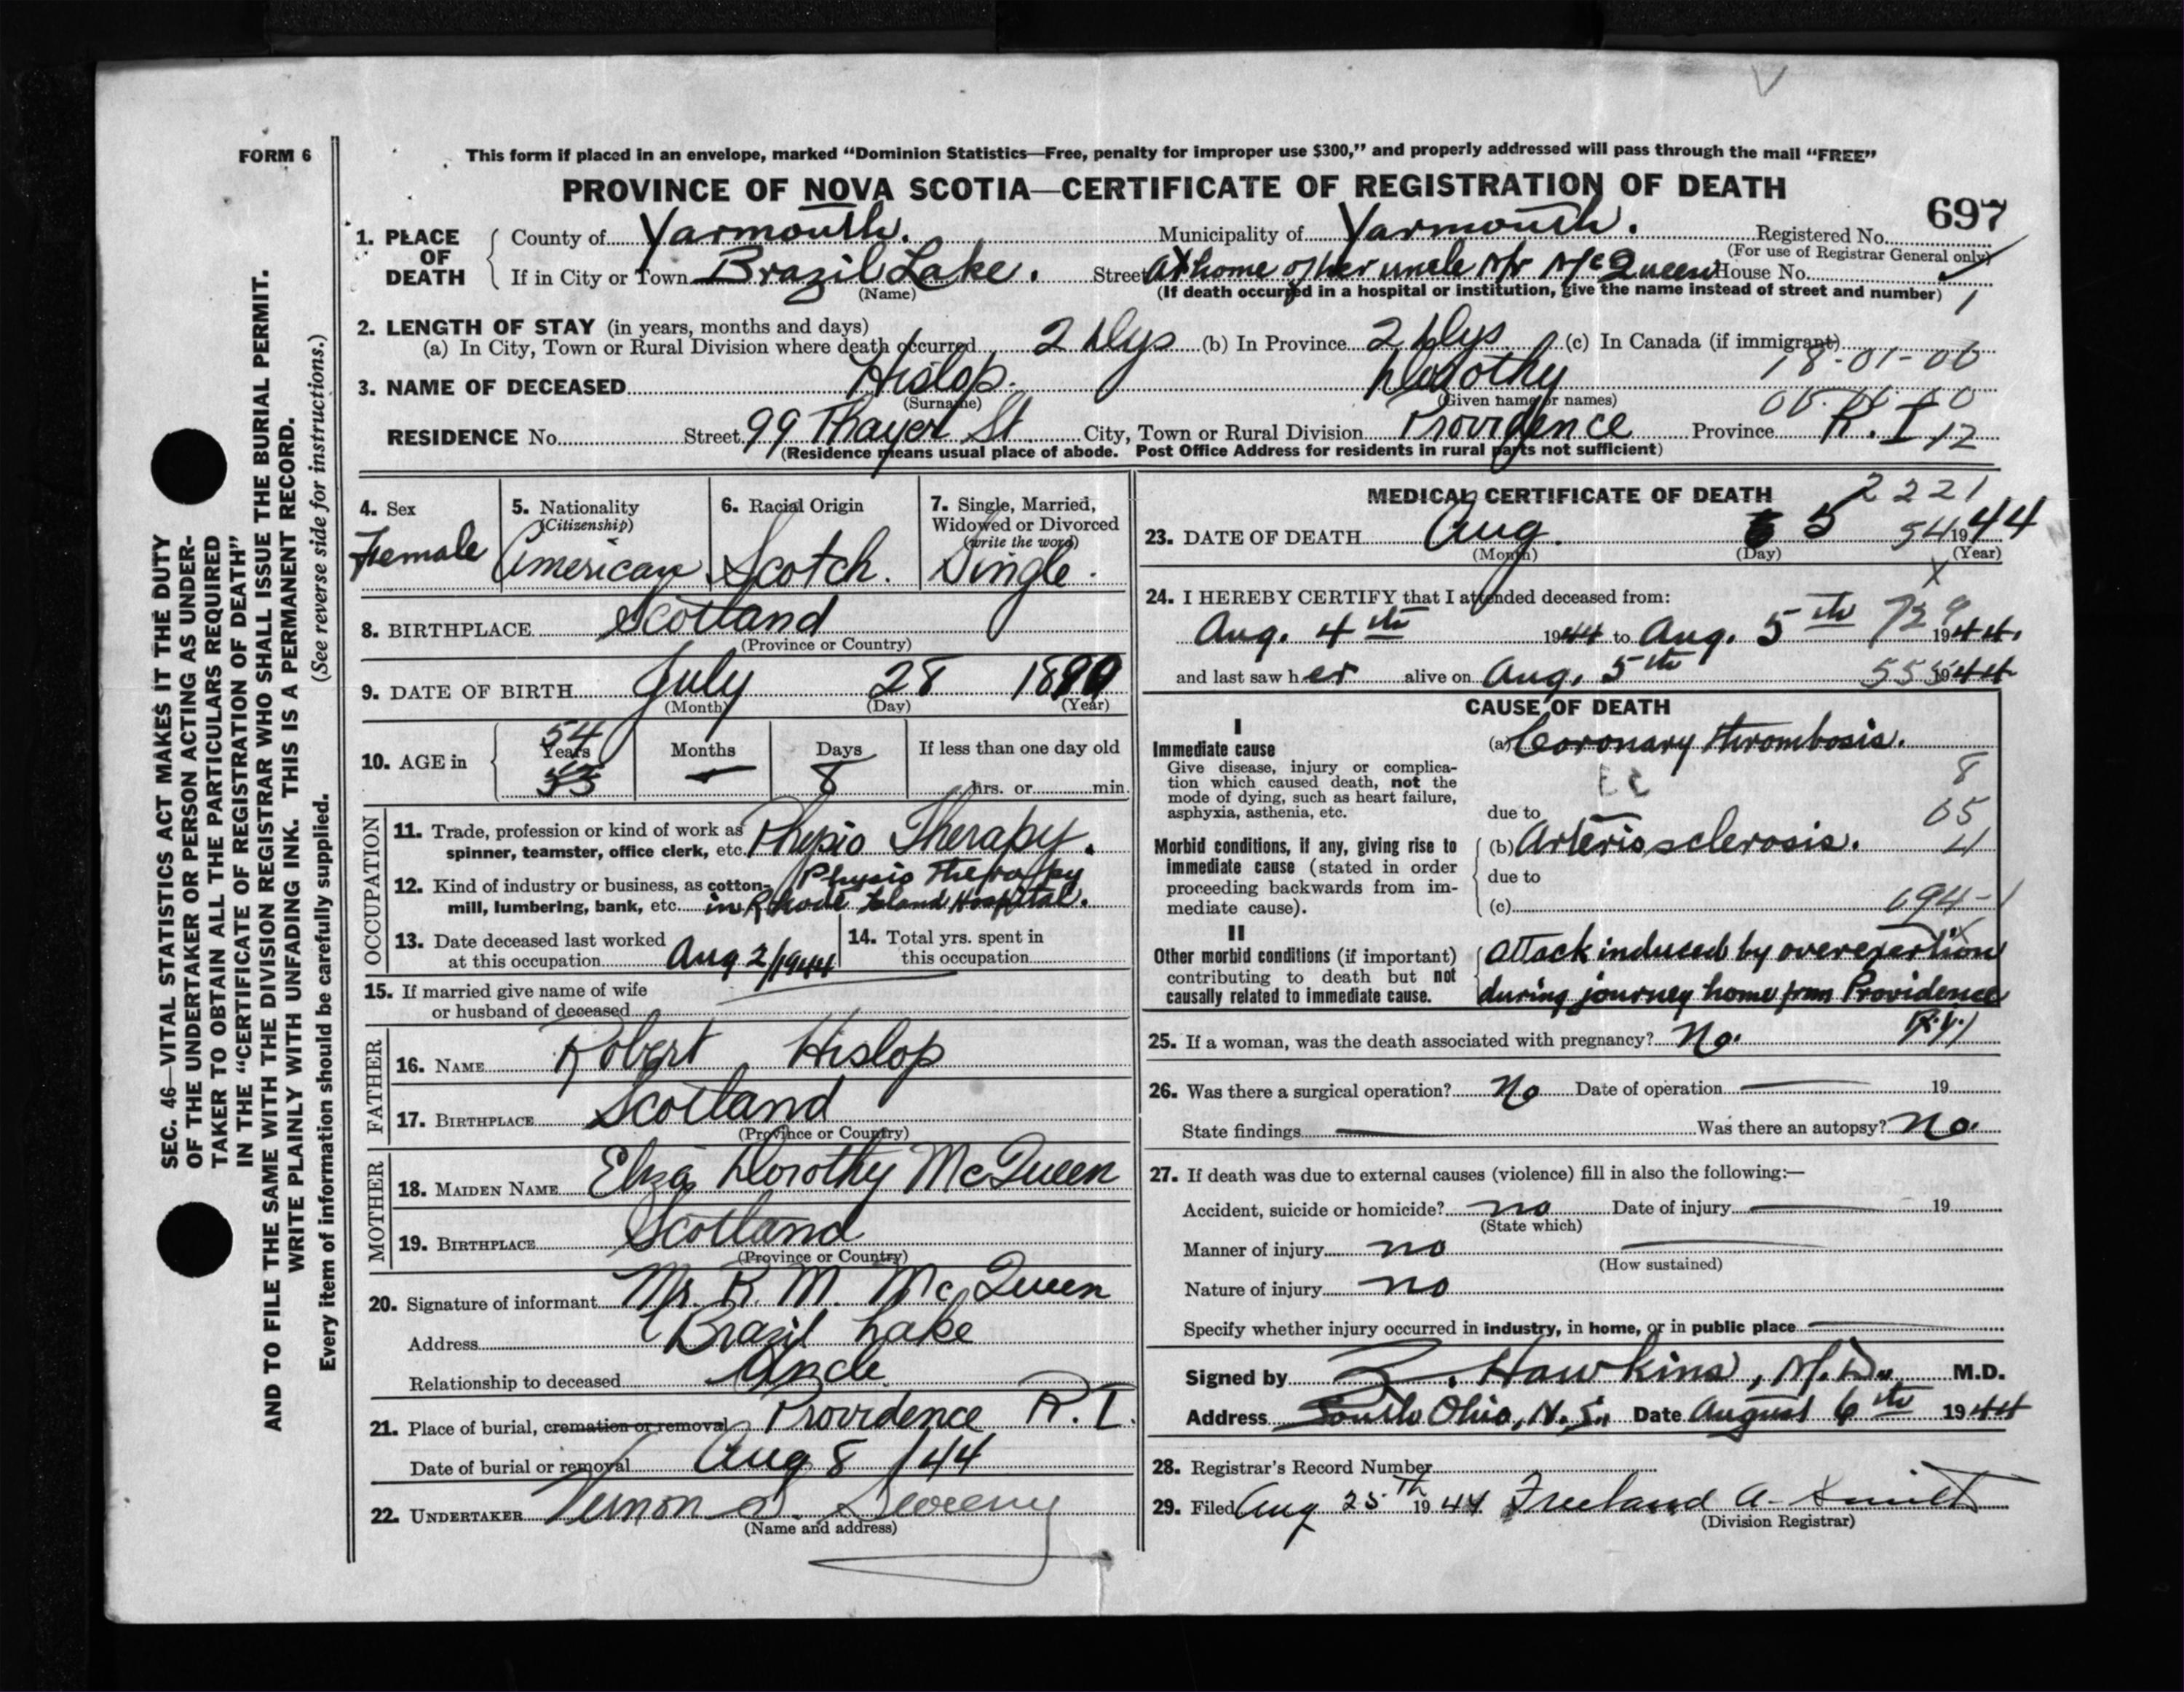 FORM 6
This form if placed in an envelope, marked "Dominion Statistics—Free, penalty for improper use $300," and properly addressed will pass through the mail "FREE"
PROVINCE OF NOVA SCOTIA—CERTIFICATE OF REGISTRATION OF DEATH
697
1. PLACE OF DEATH
County of Yarmouth. Municipality of Yarmouth. Registered No.
(For use of Registrar General only)
If in City or Town Brazil Lake. Street At home of her uncle Mr McQueen House No.
(Name) (If death occurred in a hospital or institution, give the name instead of street and number) 1
2. LENGTH OF STAY (in years, months and days)
(a) In City, Town or Rural Division where death occurred 2 Dys (b) In Province 2 Dys (c) In Canada (if immigrant)
18-01-00
3. NAME OF DECEASED Hislop. Dorothy
(Surname) (Given name or names)
RESIDENCE No. Street 99 Thayer St City, Town or Rural Division Providence Province R.I. 12
(Residence means usual place of abode. Post Office Address for residents in rural parts not sufficient)
4. Sex Female
5. Nationality (Citizenship) American
6. Racial Origin Scotch.
7. Single, Married, Widowed or Divorced (write the word) Single.
8. BIRTHPLACE Scotland
(Province or Country)
9. DATE OF BIRTH July 28 1890
(Month) (Day) (Year)
10. AGE in 54 Years 53 Months — Days 8 If less than one day old
hrs. or min.
OCCUPATION
11. Trade, profession or kind of work as spinner, teamster, office clerk, etc. Physio Therapy.
12. Kind of industry or business, as cotton-mill, lumbering, bank, etc. Physio therapy in Rhode Island Hospital.
13. Date deceased last worked at this occupation Aug 2/1944
14. Total yrs. spent in this occupation
15. If married give name of wife or husband of deceased
FATHER
16. NAME Robert Hislop
17. BIRTHPLACE Scotland
(Province or Country)
MOTHER
18. MAIDEN NAME Eliza Dorothy McQueen
19. BIRTHPLACE Scotland
(Province or Country)
20. Signature of informant Mr. R. M. McQueen
Address Brazil Lake
Relationship to deceased Uncle
21. Place of burial, cremation or removal Providence R.I.
Date of burial or removal Aug 8 /44
22. UNDERTAKER Vernon Sweeny
(Name and address)
MEDICAL CERTIFICATE OF DEATH 2221
23. DATE OF DEATH Aug. 5 54 1944
(Month) (Day) (Year)
24. I HEREBY CERTIFY that I attended deceased from:
Aug. 4th 1944 to Aug. 5th 1944.
and last saw her alive on Aug. 5th 1944
CAUSE OF DEATH
I
Immediate cause
Give disease, injury or complication which caused death, not the mode of dying, such as heart failure, asphyxia, asthenia, etc.
(a) Coronary thrombosis.
8
due to
05
Morbid conditions, if any, giving rise to immediate cause (stated in order proceeding backwards from immediate cause).
(b) Arteriosclerosis.
due to
(c) 194-1
II
Other morbid conditions (if important) contributing to death but not causally related to immediate cause.
attack induced by overexertion
during journey home from Providence
R.I.
25. If a woman, was the death associated with pregnancy? No.
26. Was there a surgical operation? No Date of operation 19
State findings Was there an autopsy? No.
27. If death was due to external causes (violence) fill in also the following:—
Accident, suicide or homicide? no Date of injury 19
(State which)
Manner of injury no
(How sustained)
Nature of injury no
Specify whether injury occurred in industry, in home, or in public place
Signed by Z. Hawkins, M.D. M.D.
Address South Ohio, N.S. Date August 6th 1944
28. Registrar's Record Number
29. Filed Aug 25th 1944 Freeland A. Smith
(Division Registrar)
SEC. 46—VITAL STATISTICS ACT MAKES IT THE DUTY
OF THE UNDERTAKER OR PERSON ACTING AS UNDER-
TAKER TO OBTAIN ALL THE PARTICULARS REQUIRED
IN THE "CERTIFICATE OF REGISTRATION OF DEATH"
AND TO FILE THE SAME WITH THE DIVISION REGISTRAR WHO SHALL ISSUE THE BURIAL PERMIT.
WRITE PLAINLY WITH UNFADING INK. THIS IS A PERMANENT RECORD.
Every item of information should be carefully supplied. (See reverse side for instructions.)